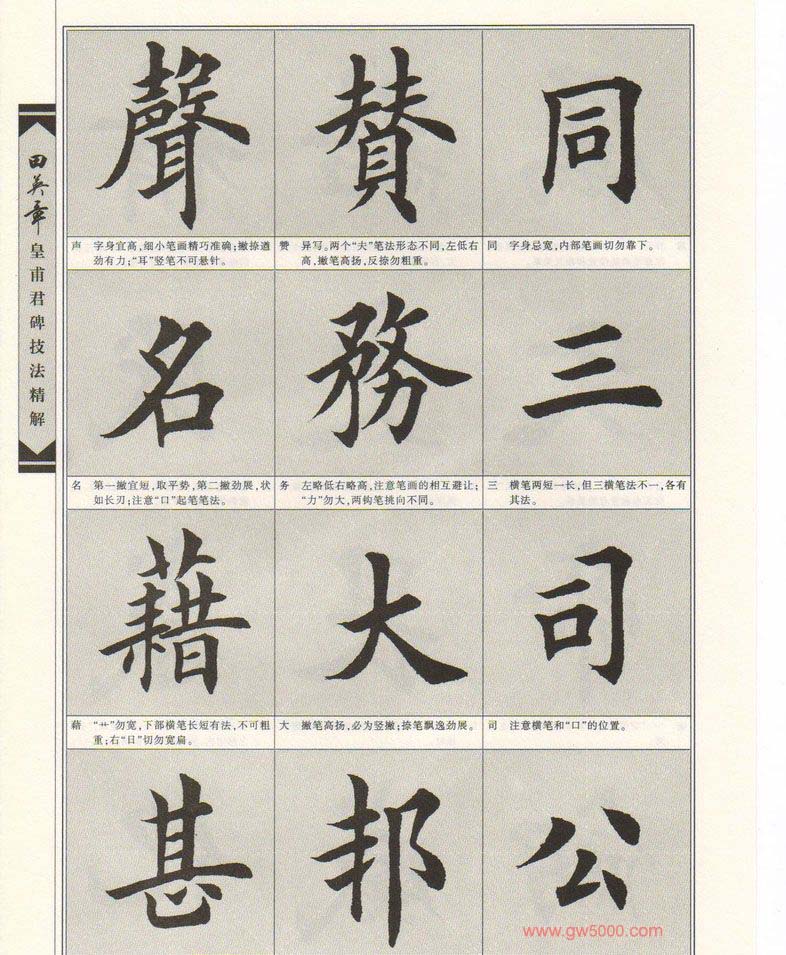 田英章皇甫君碑技法精解
同
同 字身忌宽,内部笔画切勿靠下。
三
三 横笔两短一长,但三横笔法不一,各有
其法。
司
司 注意横笔和“口”的位置。
公
賛
赞 异写。两个“夫”笔法形态不同,左低右
高,撇笔高扬,反捺勿粗重。
務
务 左略低右略高,注意笔画的相互避让;
“力”勿大,两钩笔挑向不同。
大
大 撇笔高扬,必为竖撇;捺笔飘逸劲展。
邦
聲
声 字身宜高,细小笔画精巧准确;撇捺遒
劲有力;“耳”竖笔不可悬针。
名
名 第一撇宜短,取平势,第二撇劲展,状
如长刃;注意“口”起笔笔法。
藉
藉 “艹”勿宽,下部横笔长短有法,不可粗
重;右“日”切勿宽扁。
甚
www.gw5000.com